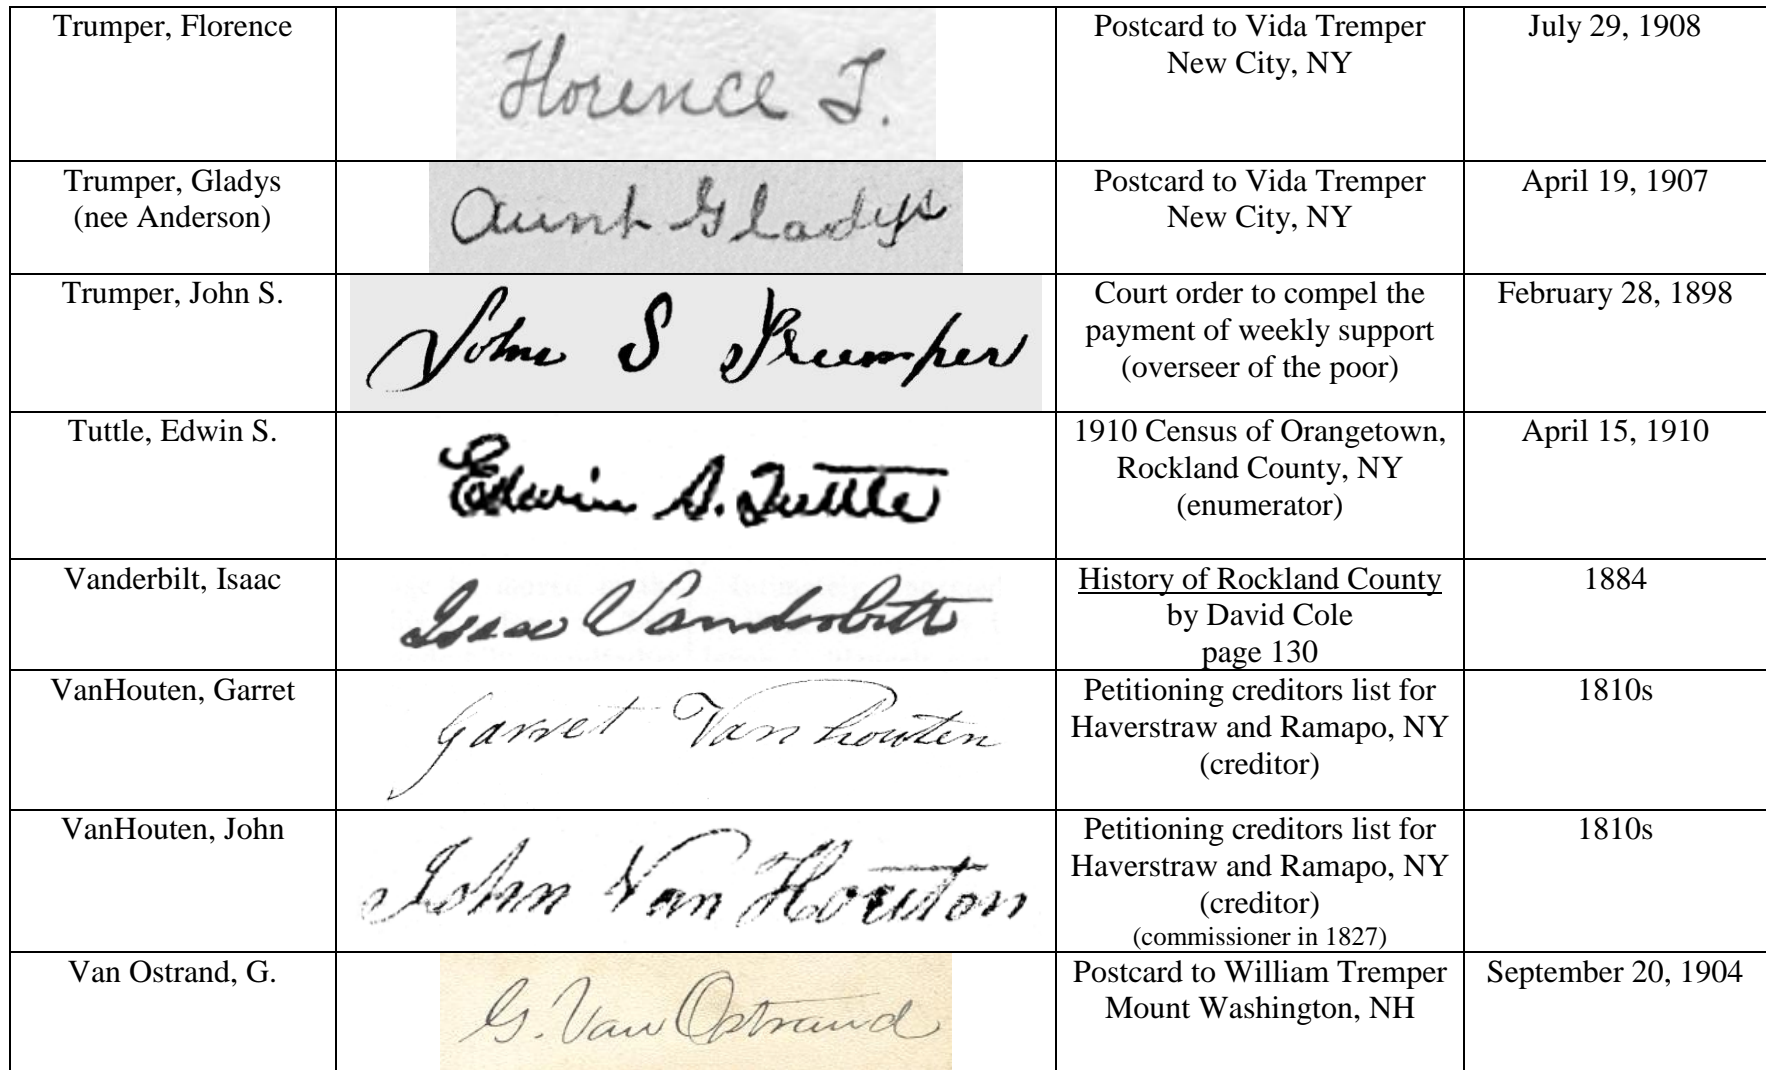 Trumper, Florence
Florence T.
Postcard to Vida Tremper
New City, NY
July 29, 1908
Trumper, Gladys
(nee Anderson)
Aunt Gladys
Postcard to Vida Tremper
New City, NY
April 19, 1907
Trumper, John S.
John S Trumper
Court order to compel the
payment of weekly support
(overseer of the poor)
February 28, 1898
Tuttle, Edwin S.
Edwin S. Tuttle
1910 Census of Orangetown,
Rockland County, NY
(enumerator)
April 15, 1910
Vanderbilt, Isaac
Isaac Vanderbilt
History of Rockland County
by David Cole
page 130
1884
VanHouten, Garret
Garret Van houten
Petitioning creditors list for
Haverstraw and Ramapo, NY
(creditor)
1810s
VanHouten, John
John Van Houton
Petitioning creditors list for
Haverstraw and Ramapo, NY
(creditor)
(commissioner in 1827)
1810s
Van Ostrand, G.
G. Van Ostrand
Postcard to William Tremper
Mount Washington, NH
September 20, 1904